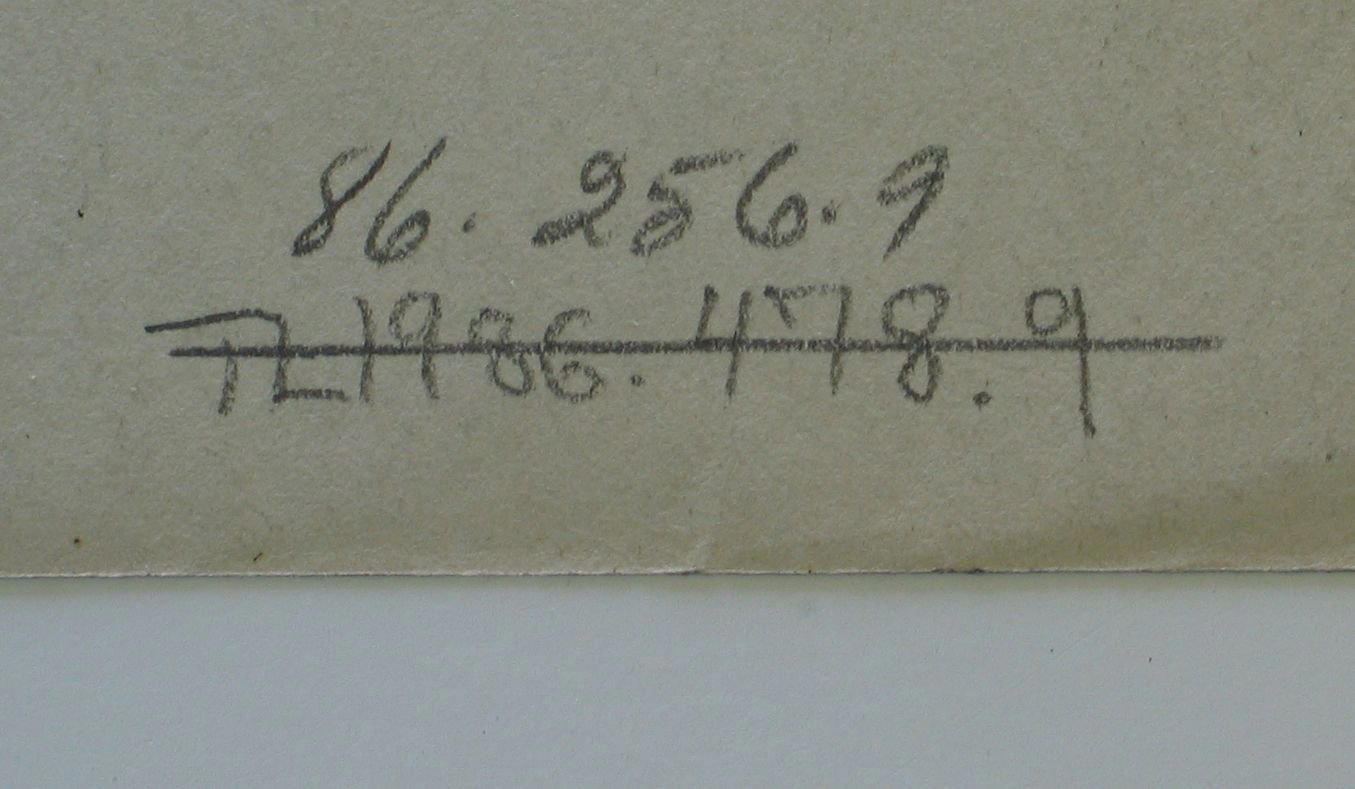 86.256.9
TL1986.478.9